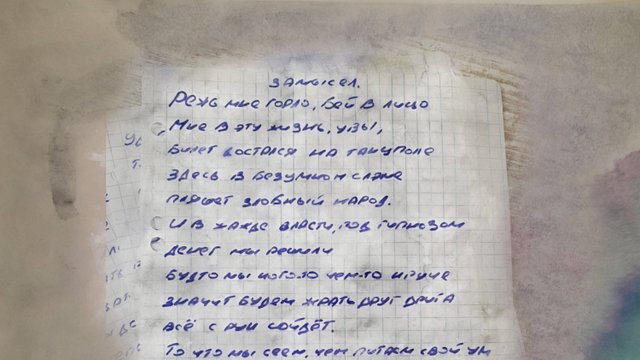 Замысел.
Режь мне горло, бей в лицо
Мне в эту жизнь, увы,
Билет достался на танцполе
Здесь в безумном слэме
пляшет злобный народ.
И в жажде власти, под гипнозом
денег мы решили
будто мы кого-то чем-то круче
значит будем жрать друг друга
всё с рук сойдёт.
То что мы сеем, чем питаем свой ум